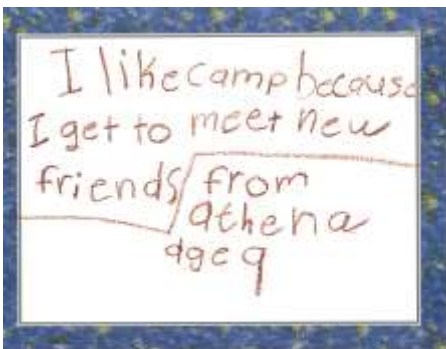 I like camp because
I get to meet new
friends from
athena
age 9